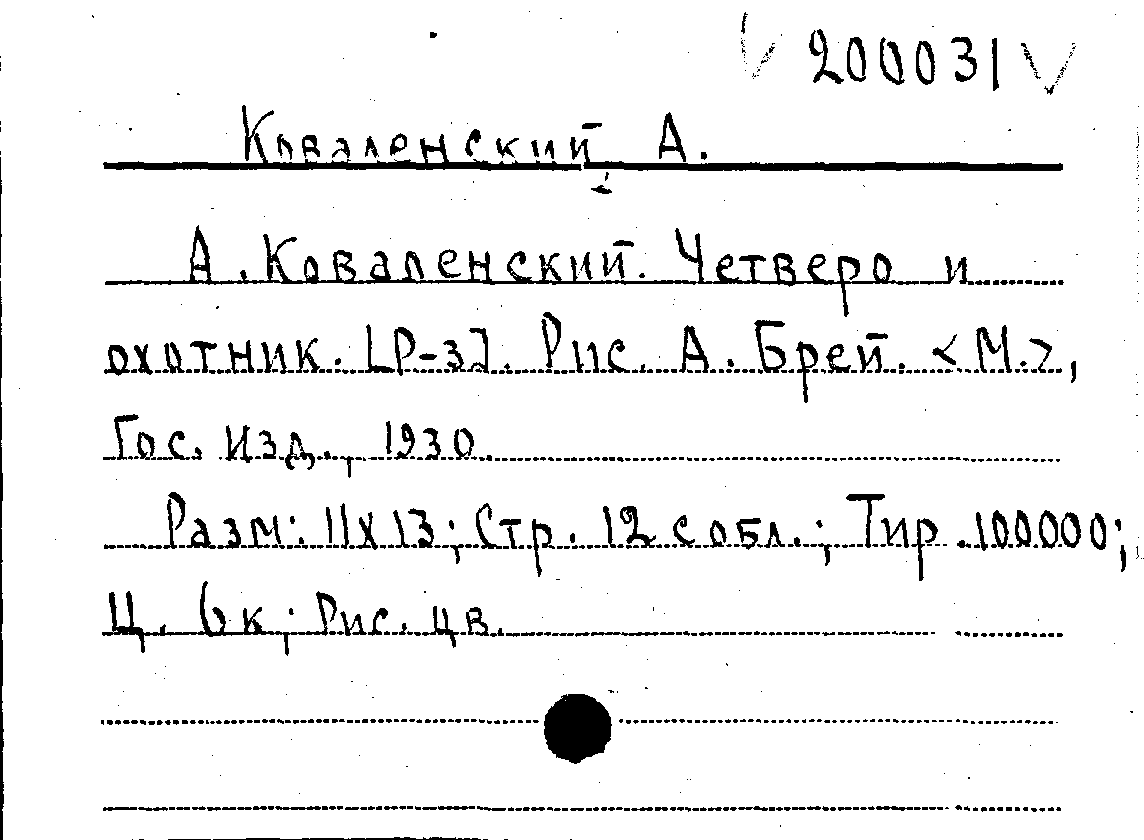 200031
Коваленский А.
А. Коваленский. Четверо и
охотник. [Р-з]. Рис. А. Брей. <М.>,
Гос. изд., 1930.
Разм: 11х13; Стр. 12 с обл.; Тир. 100000;
Ц. 6к; Рис. цв.